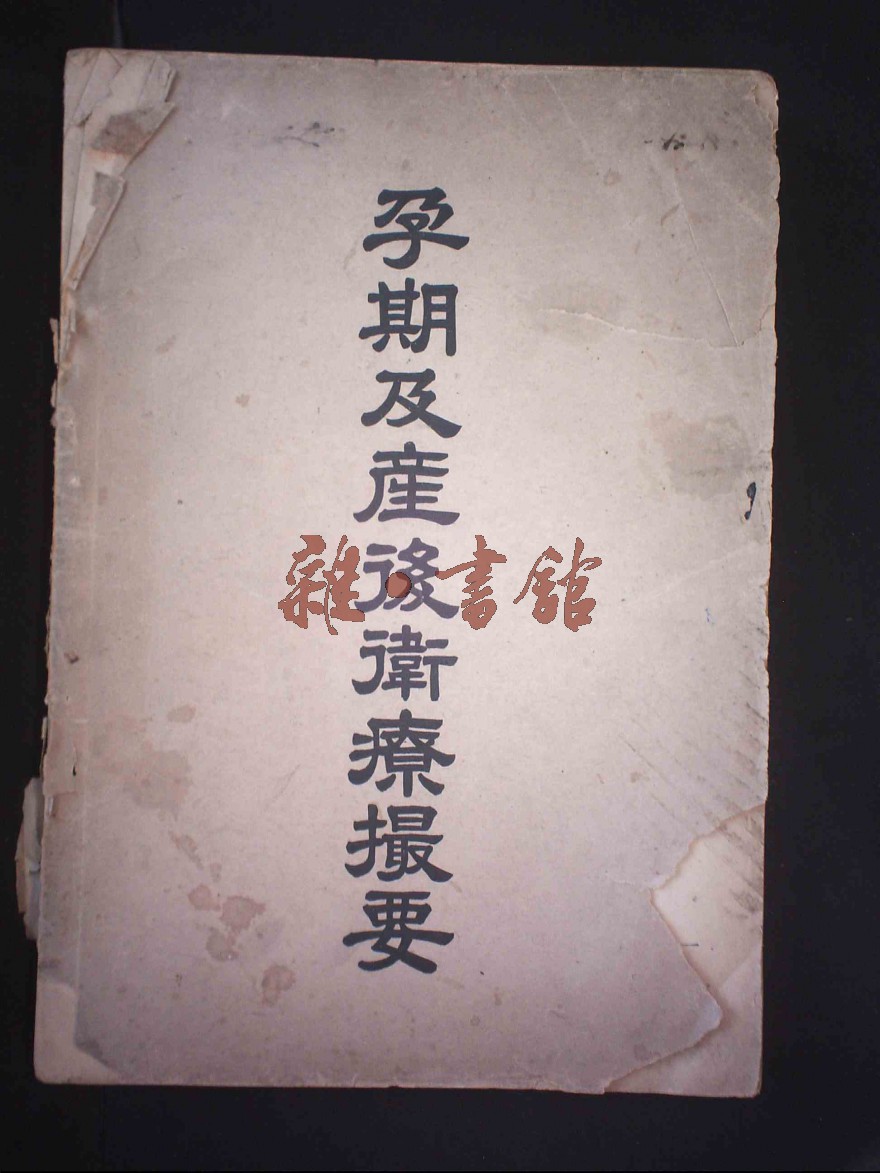 孕期及産後衛療撮要
雜·書館